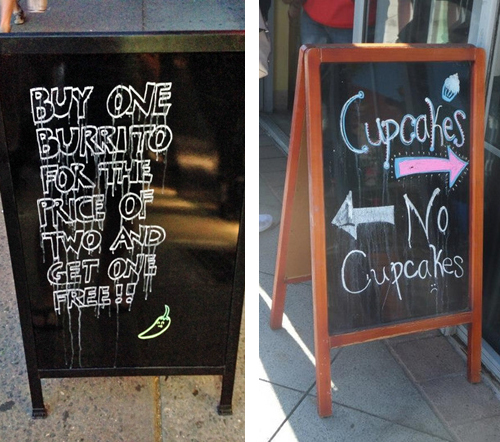 BUY ONE
BURRITO
FOR THE
PRICE OF
TWO AND
GET ONE
FREE!!
Cupcakes
No
Cupcakes